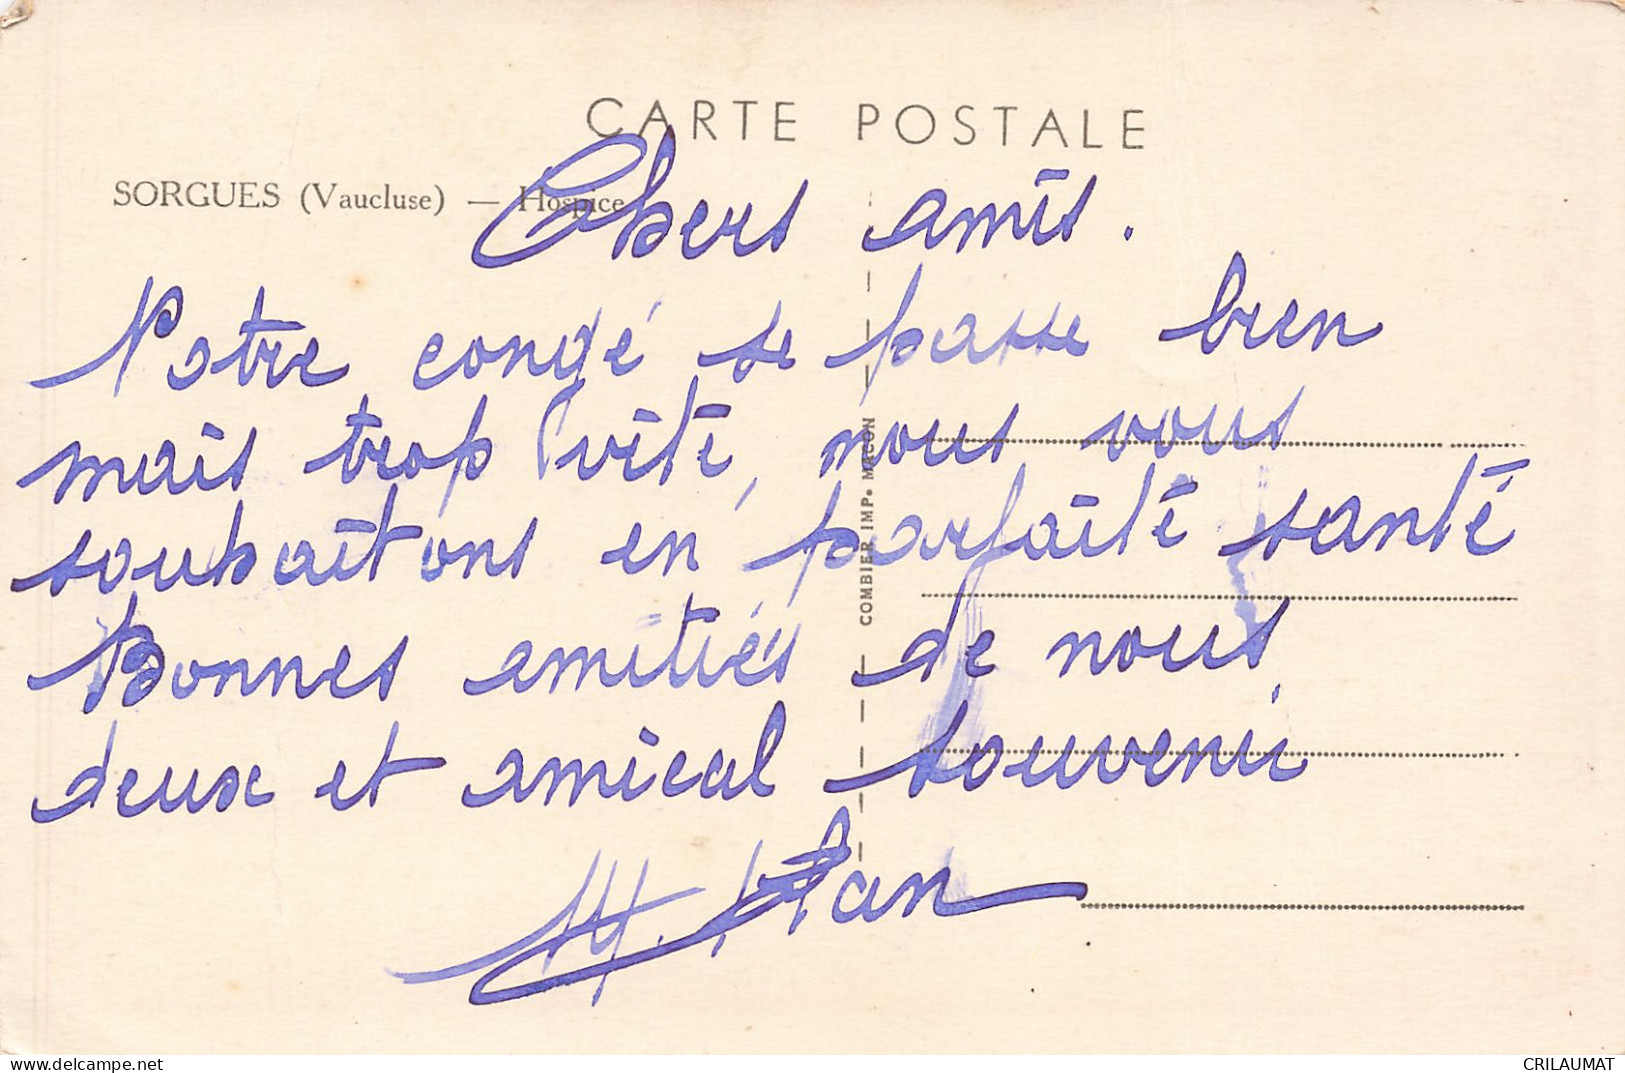 CARTE POSTALE
SORGUES (Vaucluse) — Hospice
Chers amis.
Notre congé se passe bien
mais trop vite, nous vous
souhaitons en parfaite santé
Bonnes amitiés de nous
deux et amical souvenir
COMBIER IMP. MACON
www.delcampe.net
CRILAUMAT